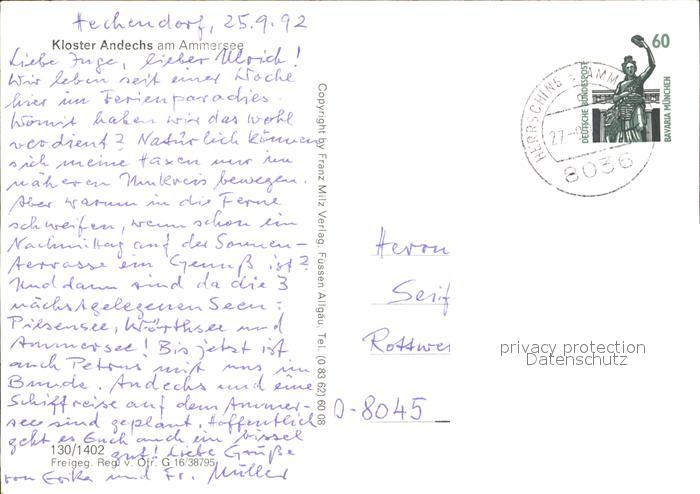 Hechendorf, 25.9.92
Kloster Andechs am Ammersee
Liebe Inge, lieber Ulrich!
Wir leben seit einer Woche
hier im Ferienparadies.
Womit haben wir das wohl
verdient? Natürlich können
sich meine Haxen nur im
näheren Umkreis bewegen.
Aber warum in die Ferne
schweifen, wenn schon ein
Nachmittag auf der Sonnen-
terrasse ein Genuß ist?
Und dann sind da die 3
nächstgelegenen Seen:
Pilsensee, Wörthsee und
Ammersee! Bis jetzt ist
auch Petrus mit uns im
Bunde. Andechs und eine
Schiffreise auf dem Ammer-
see sind geplant. Hoffentlich
geht es Euch auch ein bissel
gut! Liebe Grüße
von Erika und Fr. Müller
130/1402
Freigeg. Reg. v. Ofr. G 16/38795
Copyright by Franz Milz Verlag, Füssen Allgäu, Tel. (0 83 62) 60 08
60
DEUTSCHE BUNDESPOST
BAVARIA MÜNCHEN
HERRSCHING AMM
27.
8036
Herrn
Seif
Rottwe
D-8045
privacy protection
Datenschutz